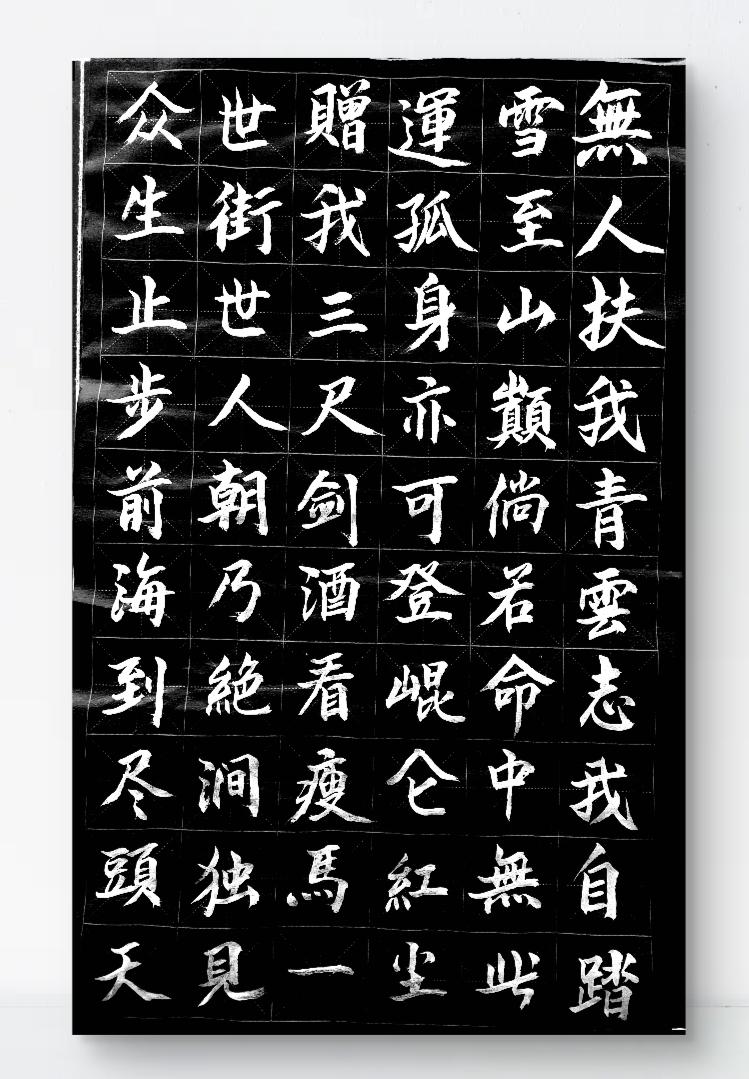 無人扶我青雲志我自踏
雪至山巔倘若命中無此
運孤身亦可登崐仑紅尘
贈我三尺剑酒看瘦馬一
世街世人朝乃絶涧独見
众生止步前海到尽頭天